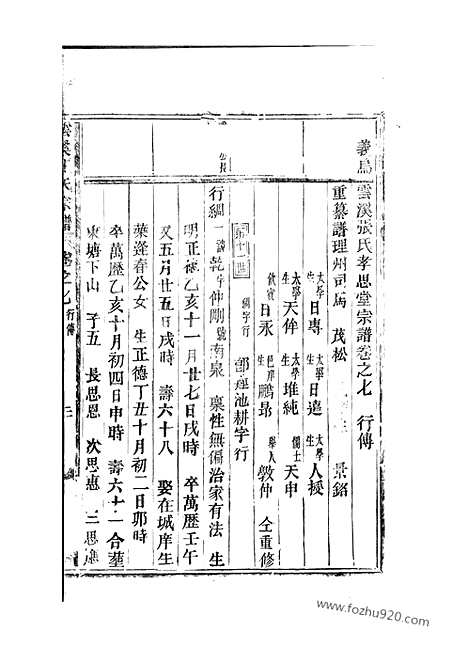 義烏雲溪張氏孝思堂宗譜卷之七 行傳
重纂譜理州司馬 茂松 景銘
太學生日專 太學生日進 太學生人授
太學生天倖 太學生堆純 儒士天申
飲賓日永 邑庠生鵬昂 舉人敦仲 仝重修
第十一世 綱字行 耕字行
行綱一諱乾字仲剛號南泉 稟性無偏治家有法 生
明正德乙亥十一月廿七日戌時 卒萬歷壬午
又五月廿五日戌時 壽六十八 娶在城庠生
葉逢春公女 生正德丁丑十月初二日夘時
卒萬歷乙亥十月初四日申時 壽六十一合葬
東塘下山 子五 長思恩 次思惠 三思
雲溪張氏宗譜 卷之七 行傳 三
www.fozhu920.com